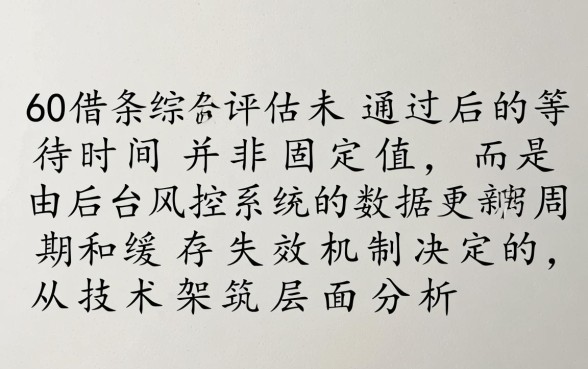 60借条综评估未 通过后的等
待时间 并非固定值，而是
由后台风控系统的数据更周
期和缓存失效机制决定的，
从技术架筑层面分析